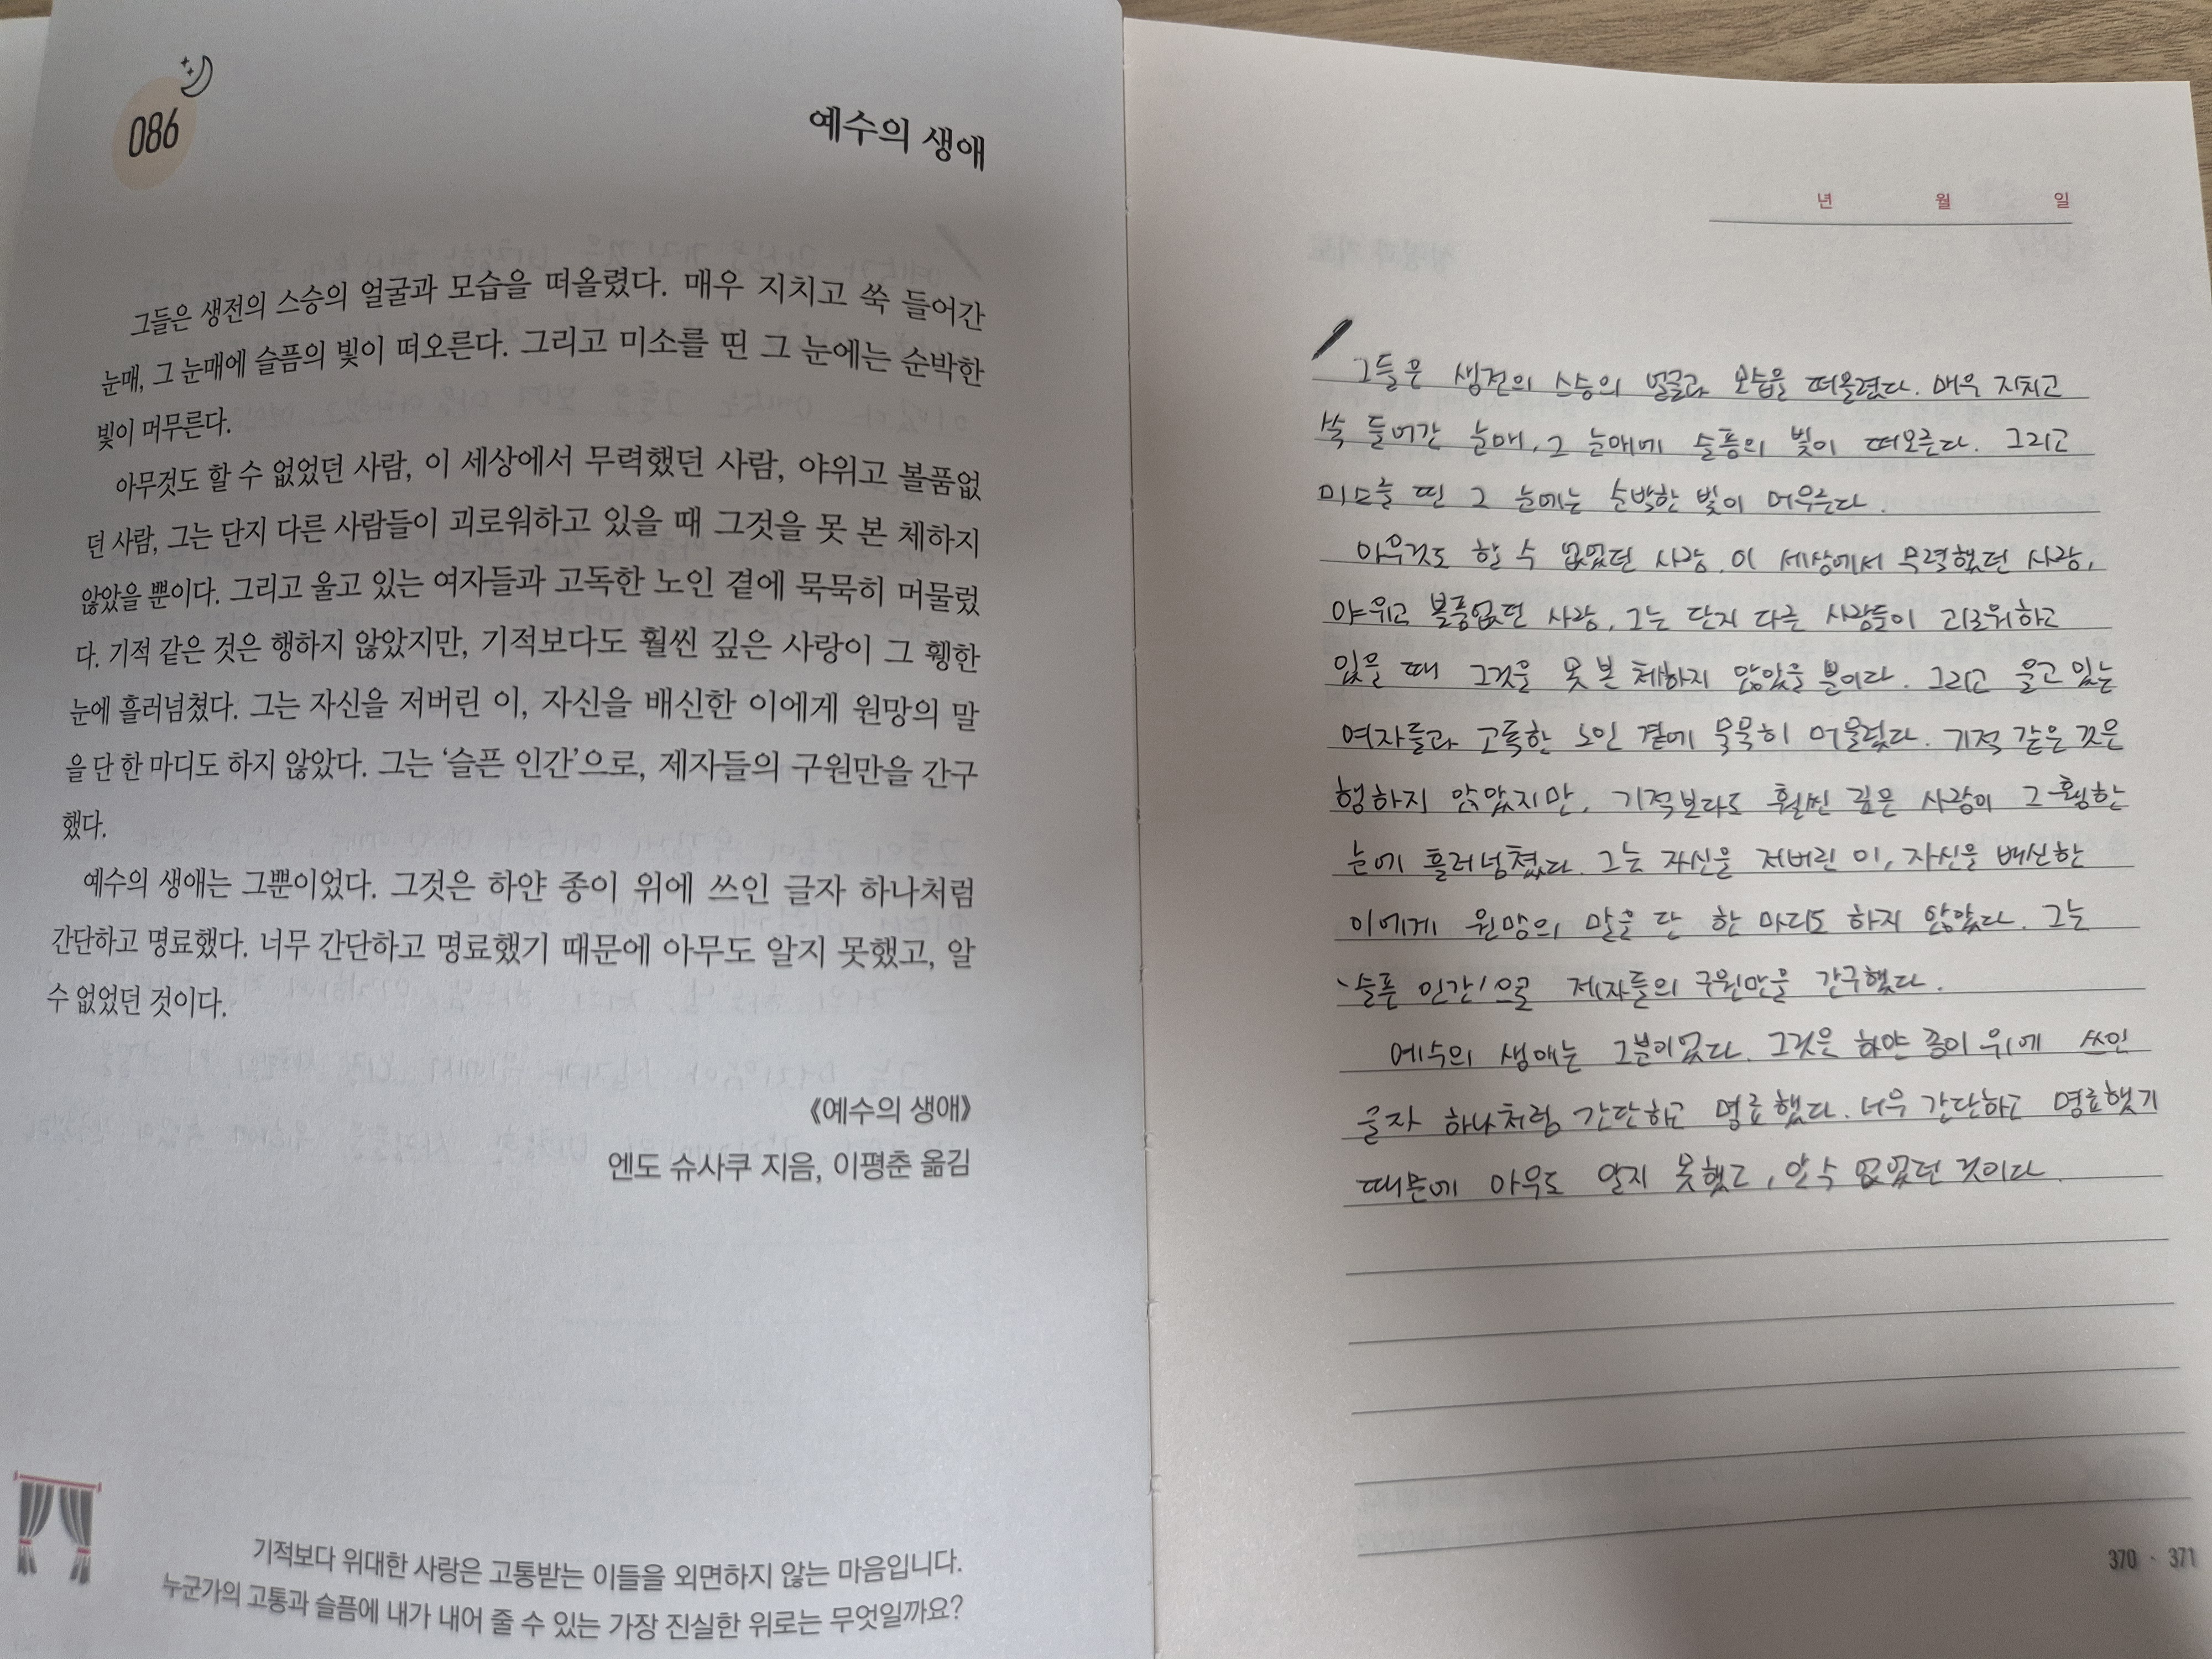 086
예수의 생애
그들은 생전의 스승의 얼굴과 모습을 떠올렸다. 매우 지치고 쑥 들어간
눈매, 그 눈매에 슬픔의 빛이 떠오른다. 그리고 미소를 띤 그 눈에는 순박한
빛이 머무른다.
아무것도 할 수 없었던 사람, 이 세상에서 무력했던 사람, 야위고 볼품없
던 사람, 그는 단지 다른 사람들이 괴로워하고 있을 때 그것을 못 본 체하지
않았을 뿐이다. 그리고 울고 있는 여자들과 고독한 노인 곁에 묵묵히 머물렀
다. 기적 같은 것은 행하지 않았지만, 기적보다도 훨씬 깊은 사랑이 그 휑한
눈에 흘러넘쳤다. 그는 자신을 저버린 이, 자신을 배신한 이에게 원망의 말
을 단 한 마디도 하지 않았다. 그는 ‘슬픈 인간’으로, 제자들의 구원만을 간구
했다.
예수의 생애는 그뿐이었다. 그것은 하얀 종이 위에 쓰인 글자 하나처럼
간단하고 명료했다. 너무 간단하고 명료했기 때문에 아무도 알지 못했고, 알
수 없었던 것이다.
《예수의 생애》
엔도 슈사쿠 지음, 이평춘 옮김
기적보다 위대한 사랑은 고통받는 이들을 외면하지 않는 마음입니다.
누군가의 고통과 슬픔에 내가 내어 줄 수 있는 가장 진실한 위로는 무엇일까요?
년 월 일
그들은 생전의 스승의 얼굴과 모습을 떠올렸다. 매우 지치고
쑥 들어간 눈매, 그 눈매에 슬픔의 빛이 떠오른다. 그리고
미소를 띤 그 눈에는 순박한 빛이 머무른다.
아무것도 할 수 없었던 사람, 이 세상에서 무력했던 사람,
야위고 볼품없던 사람, 그는 단지 다른 사람들이 괴로워하고
있을 때 그것을 못 본 체하지 않았을 뿐이다. 그리고 울고 있는
여자들과 고독한 노인 곁에 묵묵히 머물렀다. 기적 같은 것은
행하지 않았지만, 기적보다도 훨씬 깊은 사랑이 그 휑한
눈에 흘러넘쳤다. 그는 자신을 저버린 이, 자신을 배신한
이에게 원망의 말을 단 한 마디도 하지 않았다. 그는
'슬픈 인간'으로 제자들의 구원만을 간구했다.
예수의 생애는 그뿐이었다. 그것은 하얀 종이 위에 쓰인
글자 하나처럼 간단하고 명료했다. 너무 간단하고 명료했기
때문에 아무도 알지 못했고, 알 수 없었던 것이다.
370 · 371